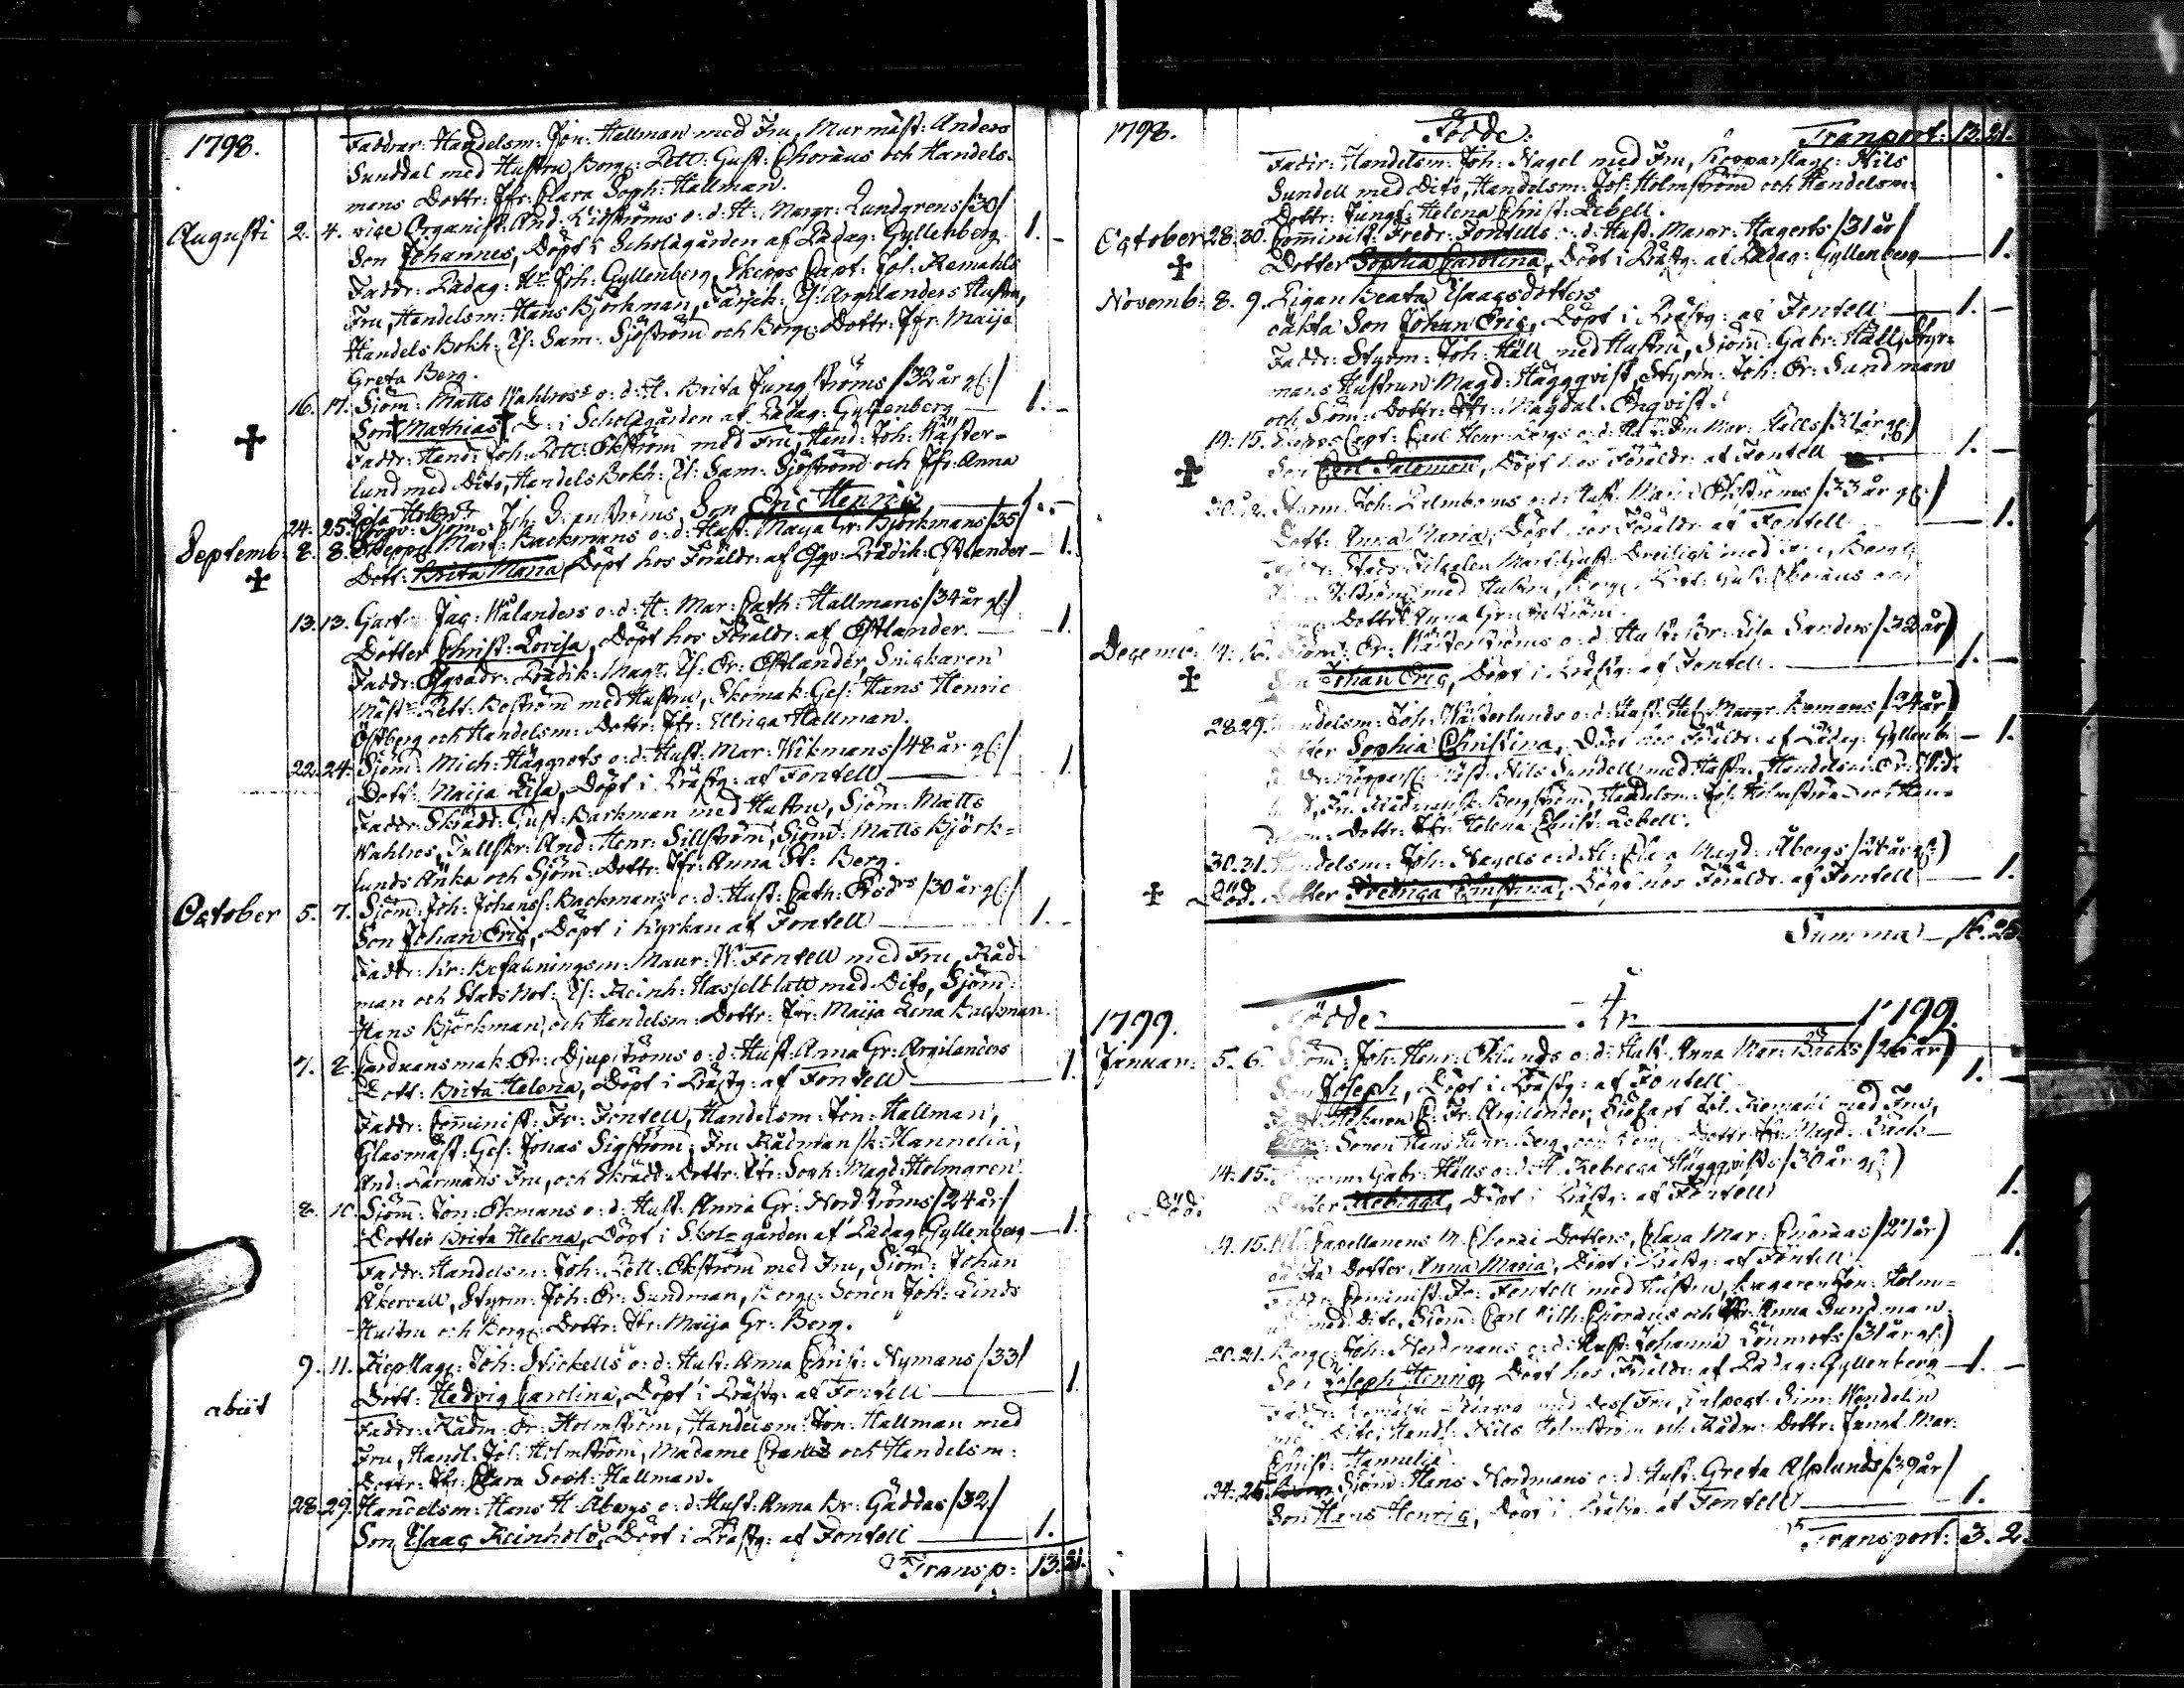 1798.
Faddrar: Handelsm: Jon: Hallman med Fru, Murmäst: Anders
Sunddal med Hustru, Borg: Lett: Gust: Choraus och Handels-
mans Dottr: Jfr: Clara Soph: Hallman.
Augusti 2. 4. vice Organist. And: Lilströms o: d: H: Margr: Lundgrens /30/
Son Johannes, Döpt i Scholægården af Pädag: Gyllenberg 1.
Faddr: Pädag: Hr Joh: Gyllenberg, Skepps Capt: Joh: Remahls
Fru, Handelsm: Hans Björkman, Färsch: Is: Argilanders Hustru,
Handels Bokh: Is: Sam: Sjöström och Borg: Dottr: Jfr: Maija
Greta Berg.
16. 17. Sjöm: Matts Wahlros o: d: H: Brita Jungströms /32 år gl:/
Son Mathias, D: i Scholægården af Pädag: Gyllenberg 1.
Faddr: Hand: Joh: Lett: Ekström med Fru, Hand: Joh: Wäster-
lund med Dito, Handels Bokh: Is: Sam: Sjöström och Jfr: Anna
24. 25. Sjöm: Joh: Son Eric Henric 1.
Septemb: 8. 8. Skepp: Mårt: Backmans o: d: Hust: Maija Gr: Björkmans /35/
Dott: Brita Maria, Döpt hos Föräldr: af Ostlander 1.
13. 13. Garf: Jac: Wålanders o: d: H: Mar: Cath: Hallmans /34 år gl:/
Dotter Christ: Lovisa, Döpt hos Föräldr: af Ostlander. 1.
Faddr: Prädik: Mag: Is: Er: Ostlander, Snickaren
Mäst: Lett: Boström med Hustru, Skomak: Ges: Hans Henric
Östberg och Handelsm: Dottr: Jfr: Ulrica Hallman.
22. 24. Sjöm: Mich: Häggrots o: d: Hust: Mar: Wikmans /42 år gl:/
Dott: Maija Lisa, Döpt i Prästg: af Fontell 1.
Faddr: Skrädd: Gust: Backman med Hustru, Sjöm: Matts
Wahlros, Tullskr: And: Henr: Sillström, Sjöm: Matts Björk-
lunds Änka och Sjöm: Dottr: Jfr: Anna St: Berg.
October 5. 7. Sjöm: Joh: Johans: Backmans o: d: Hust: Cath: /30 år gl:/
Son Johan Eric, Döpt i Kyrkan af Fontell 1.
Faddr: Kr: Befallningsm: Maur: W: Fontell med Fru, Råd-
man och Stads Not: Is: Reinh: Hasselblatt med Dito, Sjöm:
Hans Björkman, och Handelsm: Dottr: Jfr: Maija Lena Backman.
7. 8. Carduansmak: Er: Djupströms o: d: Hust: Anna Gr: Argilanders
Dott: Brita Helena, Döpt i Prästg: af Fontell 1.
Faddr: Comminist: Fr: Fontell, Handelsm: Jon: Hallman,
Glasmäst: Ges: Jonas Sigström, Fru Rådmansk: Hannelia,
And: Färmans Fru, och Skrädd: Dottr: Jfr: Soph: Magd: Holmgren.
8. 10. Sjöm: Jon: Ekmans o: d: Hust: Anna Gr: Nordströms /24 år/
Dotter Brita Helena, Döpt i Skolægården af Pädag: Gyllenberg 1.
Faddr: Handelsm: Joh: Lett: Ekström med Fru, Sjöm: Johan
Åkervall, Styrm: Joh: Er: Sundman, Borg: Sonen Joh: Linds
Hustru och Borg: Dottr: Jfr: Maija Gr: Berg.
9. 11. Repslag: Joh: Nickells o: d: Hust: Anna Christ: Nymans /33/
abiit Dott: Hedvig Carolina, Döpt i Prästg: af Fontell 1.
Faddr: Rådm: Er: Holmström, Handelsm: Jon: Hallman med
Fru, Handl: Joh: Holmström, Madame och Handelsm:
Dottr: Jfr: Clara Soph: Hallman.
28. 29. Handelsm: Hans H: Åbergs o: d: Hust: Anna Br: Gäddas /32/
Son Isaac Reinhold, Döpt i Prästg: af Fontell 1.
Transp: 13. 21.
1798. Födde: Transport: 13. 21.
Faddr: Handelsm: Joh: Nagel med Fru, Kopparslag: Nils
Sundell med Dito, Handelsm: Jos: Holmström och Handelsm:
Dottr: Jungf: Helena Christ: Lebell.
October 28. 30. Comminist: Fredr: Fontells o: d: Hust: Margr: Hagerts /31 år/
Dotter Sophia Carolina, Döpt i Prästg: af Pädag: Gyllenberg 1.
Novemb: 8. 9. Pigan Beata Isaacsdotters
oäkta Son Johan Eric, Döpt i Prästg: af Fontell 1.
Faddr: Styrm: Joh: Häll med Hustru, Sjöm: Gabr: Häll, Styr-
mans Hustrun Magd: Häggqvist, Styrm: Joh: Er: Sundman
och Sjöm: Dottr: Jfr: Magdal: Enqvist.
14. 15. Skepps Capt: Carl Henr: Bergs o: d: Mar: Hälls /31 år gl:/
Son Carl Salomon, Döpt hos Föräldr: af Fontell 1.
Styrm: Joh: o: d: Hust: Maria Ekströms /33 år gl:/
Dott: Anna Maria, Döpt hos Föräldr: af Fontell 1.
Stads Fiskalen med Fru, Borg:
med Hustru, Borg: Lett: Gust: Choraus och
Dottr: Anna Gr:
Decemb: 14. 16. Sjöm: Er: Wästerströms o: d: Hust: Br: Lisa Sanders /32 år/
Son Johan Eric, Döpt i Prästg: af Fontell. 1.
28. 29. Handelsm: Joh: Wästerlunds o: d: Hust: Hel: Margr: Bomans /24 år/
Dotter Sophia Christina, Döpt hos Föräldr: af Pädag: Gyllenb: 1.
Koppersl: Mäst: Nils Sundell med Hustru, Handelsm: Er:
Fru Rådmansk: Bergström, Handelsm: Jos: Holmström och Han-
delsm: Dottr: Jfr: Helena Christ: Lebell.
30. 31. Handelsm: Joh: Nagels o: d: H: Magd: Åbergs /26 år gl:/
Död. Dotter Fredrica Christina, Döpt hos Föräldr: af Fontell 1.
Summa 16. 25.
Födde År 1799.
1799.
Januar: 5. 6. Sjöm: Joh: Henr: Eklunds o: d: Hust: Anna Mar: Bäcks /26 år/
Son Joseph, Döpt i Prästg: af Fontell 1.
Fr: Argilander, Sjökapt: Joh: Remahl med Fru,
Sonen Hans Henr: Berg, och Dottr: Jfr: Magd: Bäck
14. 15. Gabr: Hälls o: d: H: Rebecca Häggqvists /30 år gl:/
Död. Dotter Rebecca, Döpt i Prästg: af Fontell 1.
14. 15. Capellanens Dotters, Clara Mar: Choraas /27 år/
oäkta Dotter Anna Maria, Döpt i Prästg: af Fontell 1.
Faddr: Comminist: Fr: Fontell med Hustru, Bagaren Jon: Holm-
med Dito, Sjöm: Carl Wilh: Choraus och Jfr: Anna Sundman.
20. 21. Borg: Joh: Nordmans o: d: Hust: Johanna Lönnrots /31 år gl:/
Son Joseph Henric, Döpt hos Föräldr: af Pädag: Gyllenberg 1.
Faddr: med dess Fru, Sim: Wendelin
med Dito, Handl: Nils Holmström och Rådm: Dottr: Jungf: Mar:
Christ: Hannelia.
24. 25. Sjöm: Hans Nordmans o: d: Hust: Greta Asplunds /39 år/
Son Hans Henric, Döpt i Prästg: af Fontell 1.
Transport: 3. 2.